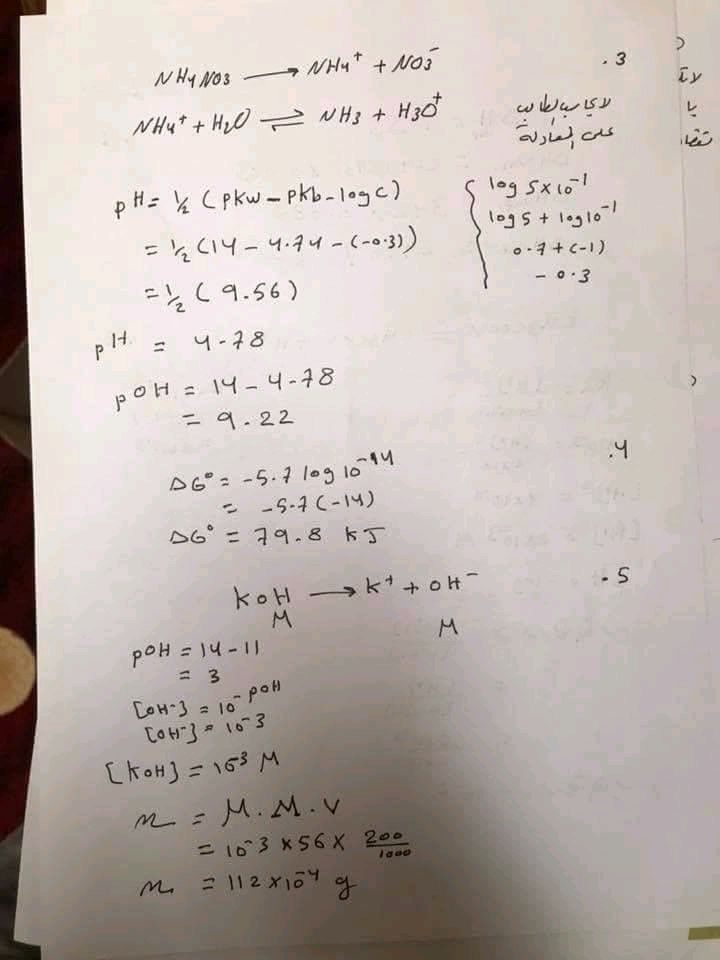 .3
NH4NO3 ⟶ NH4⁺ + NO3⁻
NH4⁺ + H2O ⇌ NH3 + H3O⁺
لا يحاسب الطالب
على المعادلة
pH = ½ (pKw – pKb – log c)
= ½ (14 – 4.74 – (-0.3))
= ½ ( 9.56 )
log 5×10⁻¹
log 5 + log 10⁻¹
0.7 + (-1)
- 0.3
pH = 4.78
pOH = 14 – 4.78
= 9.22
.4
ΔG° = -5.7 log 10⁻¹⁴
= -5.7 (-14)
ΔG° = 79.8 kJ
.5
KOH ⟶ K⁺ + OH⁻
M M
pOH = 14 – 11
= 3
[OH⁻] = 10⁻ᵖᴼᴴ
[OH⁻] = 10⁻³
[KOH] = 10⁻³ M
m = M . M . V
= 10⁻³ × 56 × 200/1000
m = 112 × 10⁻⁴ g